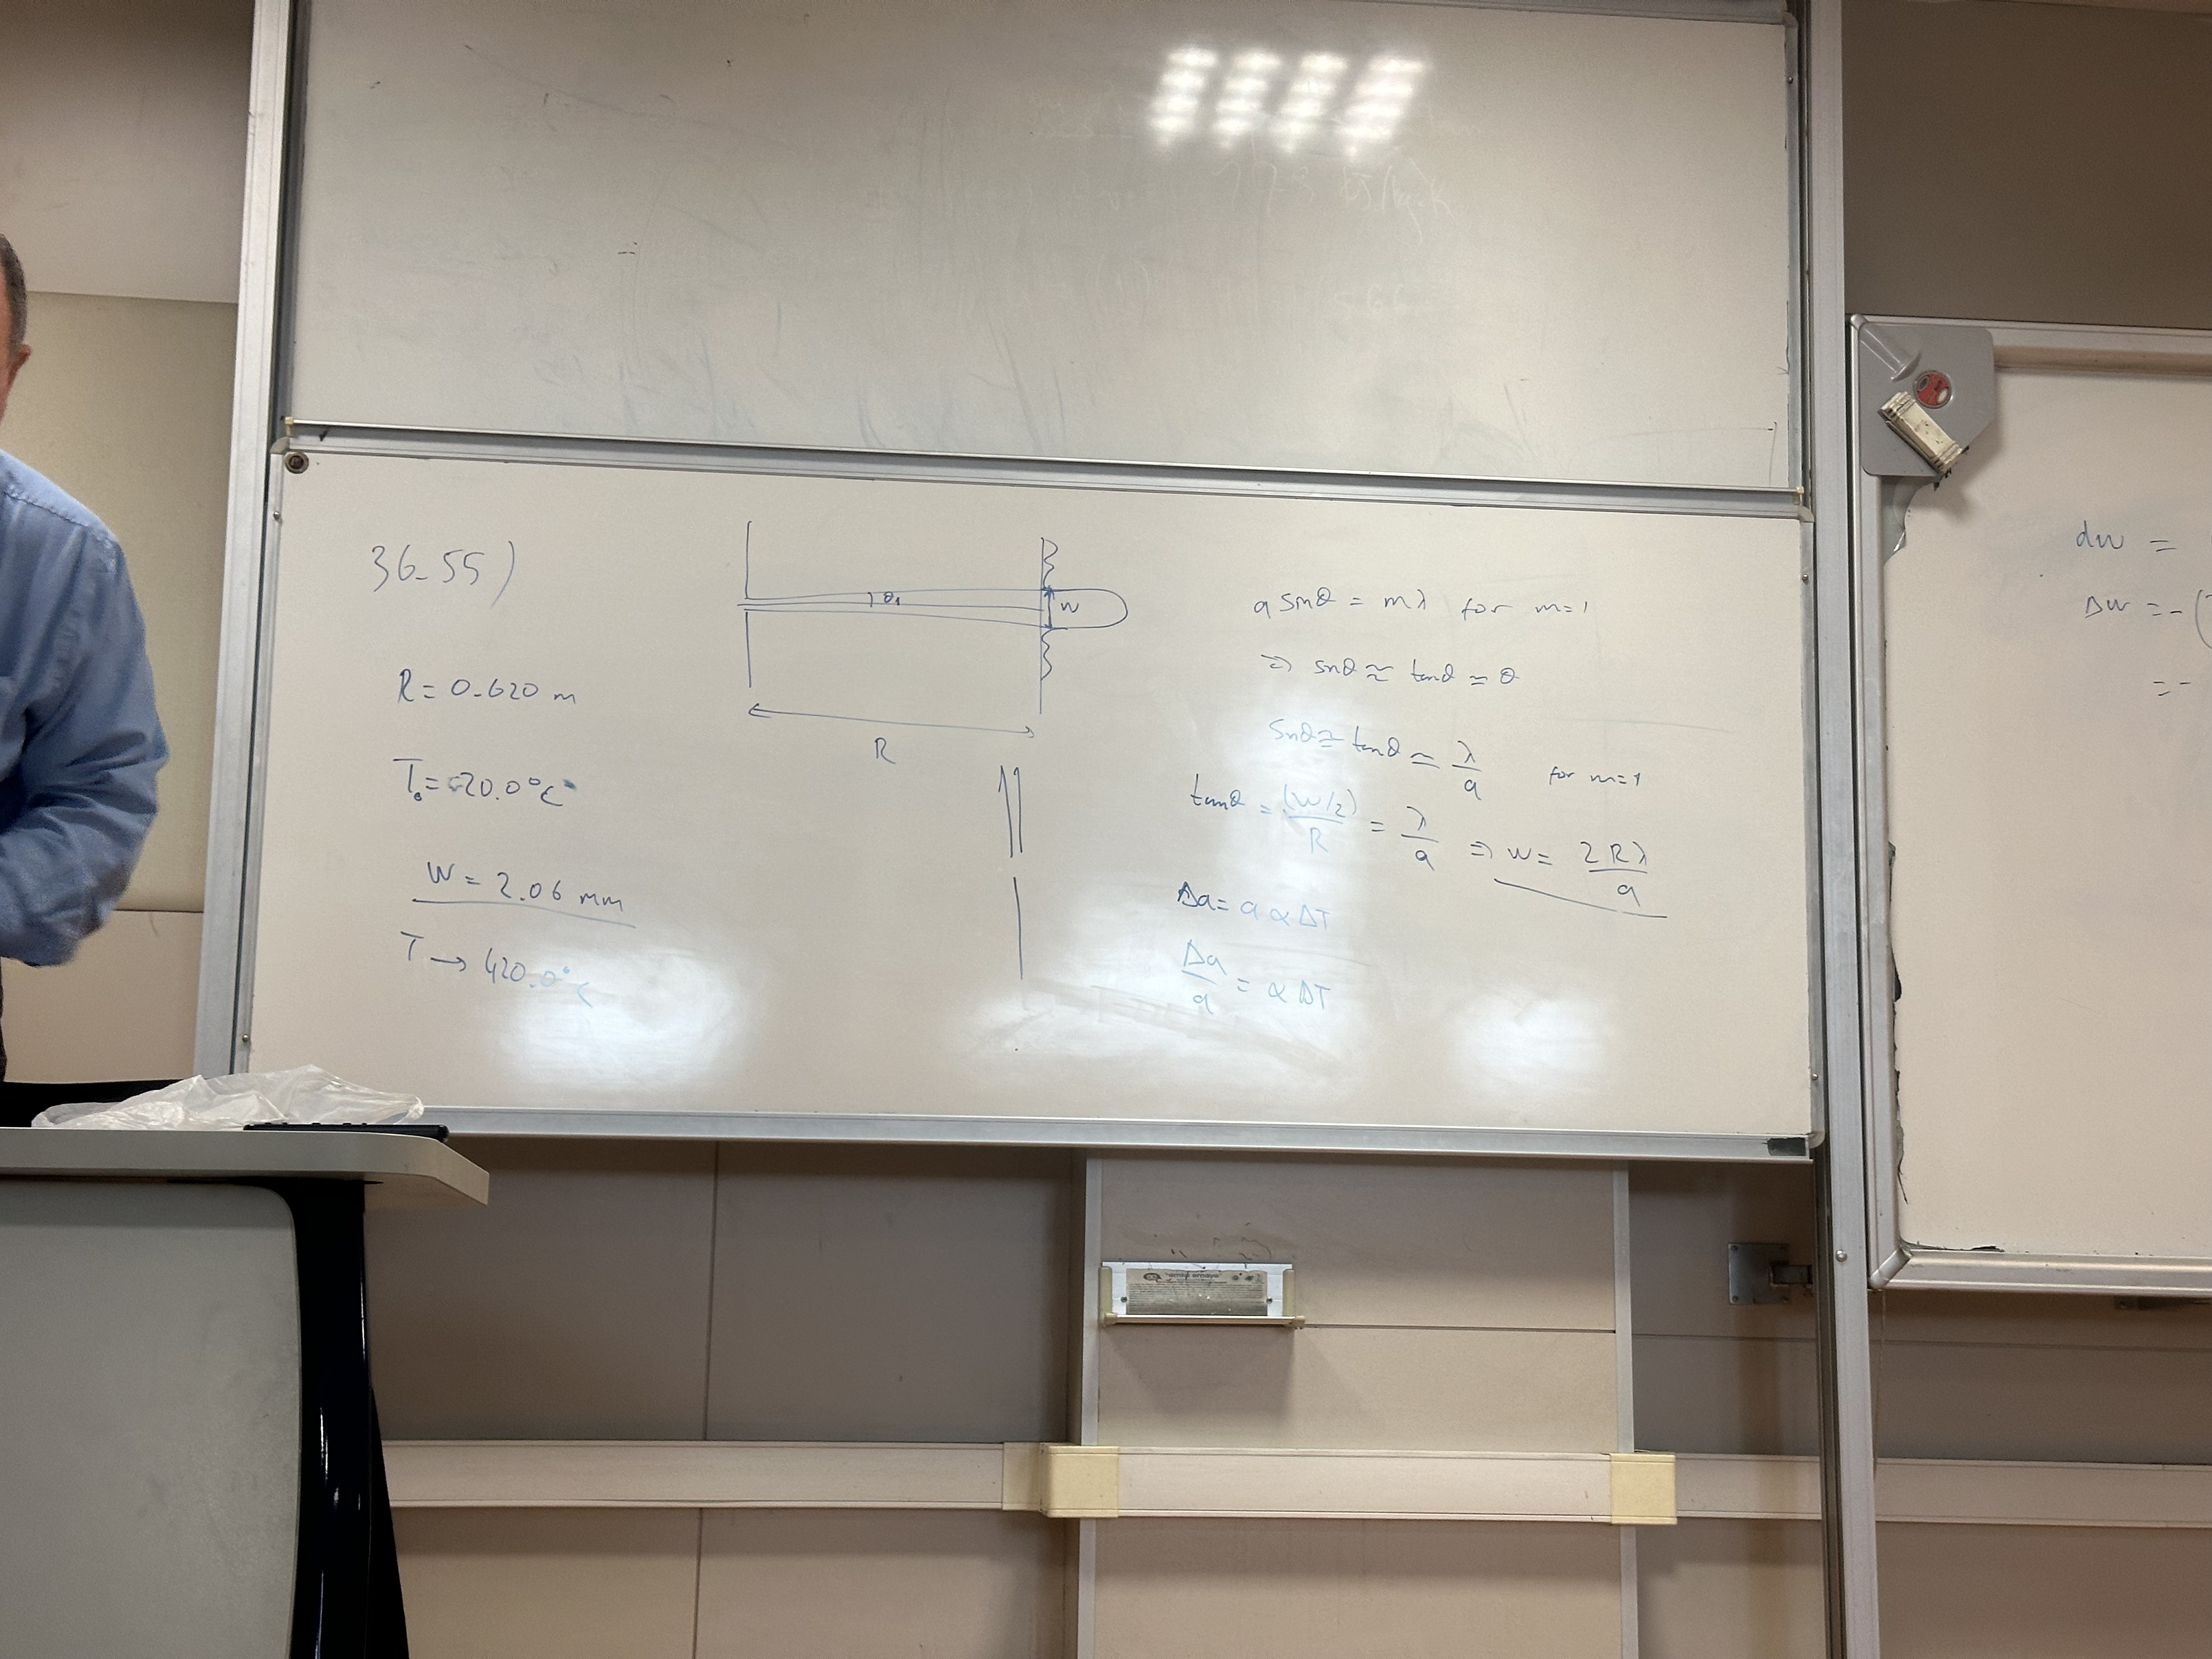 36-55)
R = 0.620 m
T₀ = 20.0°C
W = 2.06 mm
T → 420.0°C
θ₁
W
R
a sinθ = mλ for m=1
⇒ sinθ ≃ tanθ ≃ θ
sinθ ≃ tanθ ≃ λ/a for m=1
tanθ = (W/2)/R = λ/a ⇒ w = 2Rλ/a
Δa = a α ΔT
Δa/a = α ΔT
dw =
Δw = - (
= -